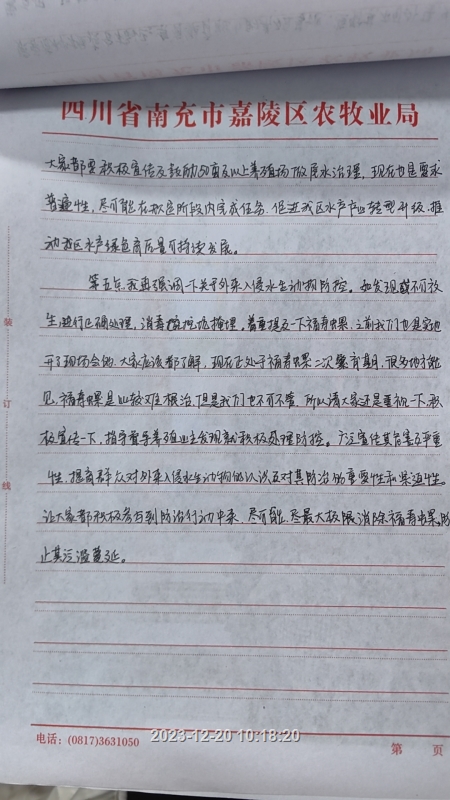 四川省南充市嘉陵区农牧业局
大家都要积极宣传及鼓励50亩及以上养殖场做尾水治理，现在也是要求
普遍性，尽可能在数层阶段内完成任务，促进我区水产产业转型升级，推
动我区水产绿色高质量可持续发展。
第五点，我再强调一下关于外来入侵水生动物防控。如发现或不可放
生，进行正确处理，消毒 挖坑掩埋，着重提及一下福寿螺，之前我们也是实地
开了现场会的，大家应该都了解，现在正处于福寿螺二次繁育期，很多地方能
见，福寿螺是比较难根治，但是我们也不可不管，所以请大家还是重视一下，积
极宣传一下，指导督导养殖业主发现就积极处理防控。广泛宣传其危害及严重
性，提高群众对外来入侵水生动物的认识及对其防治的重要性和紧迫性。
让大家都积极参与到防治行动中来，尽可能、尽最大极限消除福寿螺，防
止其污温蔓延。
装
订
线
电话：(0817)3631050
2023-12-20 10:18:20
第 页